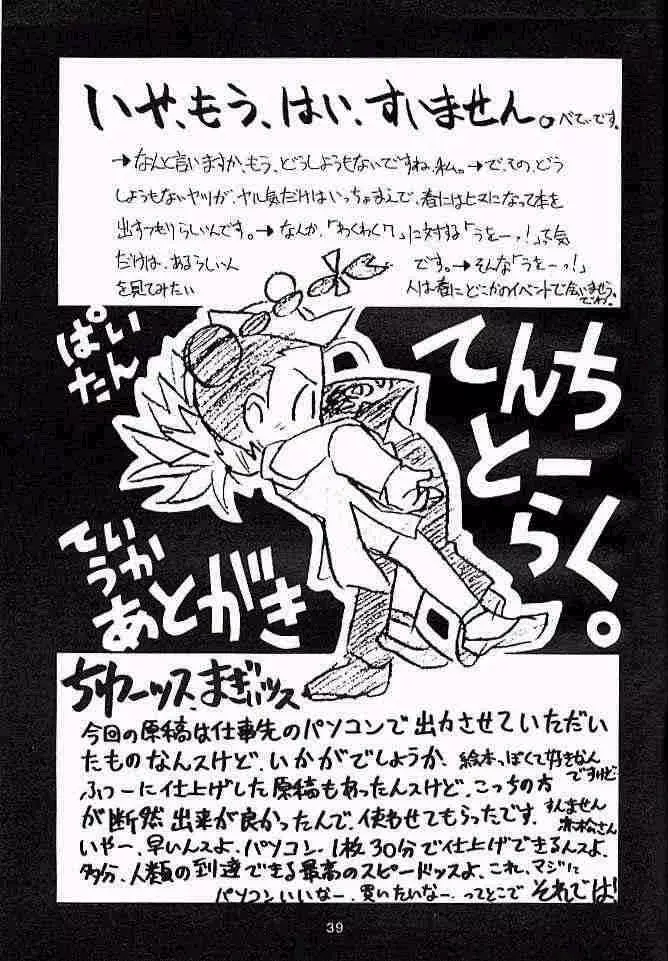 いや、もう、はい、すいません。べてぃです。
→なんと言いますか、もう、どうしようもないですね、私。→で、その、どう
しようもないヤツが、ヤル気だけはいっちょまえで、春にはヒマになって本を
出すつもりらしいんです。→なんか、「わくわく7」に対する「うをーっ!」って気
だけは、あるらしいん です。→そんな「うをーっ!」
を見てみたい 人は春にどこかのイベントで会いませう。
でわ。
ぱい
たん
てんち
とーく。
らく。
ていうか
あとがき
ちゅーッス、まぎぃッス
今回の原稿は仕事先のパソコンで出力させていただい
たものなんスけど、いかがでしょうか、絵本っぽくて好きなん
ですけど
ふつーに仕上げした原稿もあったんスけど、こっちの方
が断然出来が良かったんで、使わせてもらったです。すんません
赤松さん
いやー、早いんスよ、パソコン、1枚30分で仕上げできるんスよ、
多分、人類の到達できる最高のスピードッスよ、これ、マジに
パソコンいいなー、買いたいなー、ってとこで それでは!
39